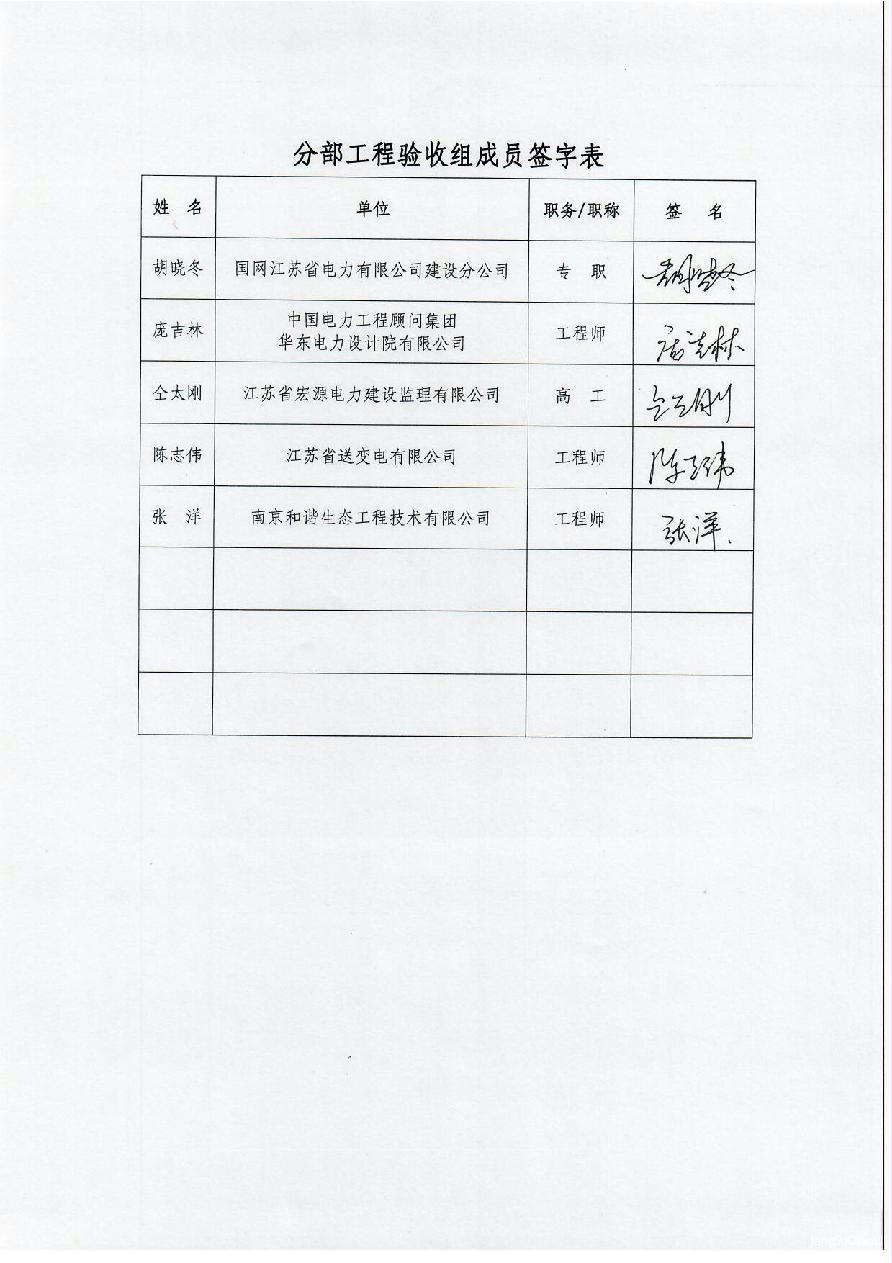 分部工程验收组成员签字表
姓 名 单位 职务/职称 签 名
胡晓冬 国网江苏省电力有限公司建设分公司 专 职 胡晓冬
庞吉林 中国电力工程顾问集团
华东电力设计院有限公司 工程师 庞吉林
仝太刚 江苏省宏源电力建设监理有限公司 高 工 仝太刚
陈志伟 江苏省送变电有限公司 工程师 陈志伟
张 洋 南京和谐生态工程技术有限公司 工程师 张洋